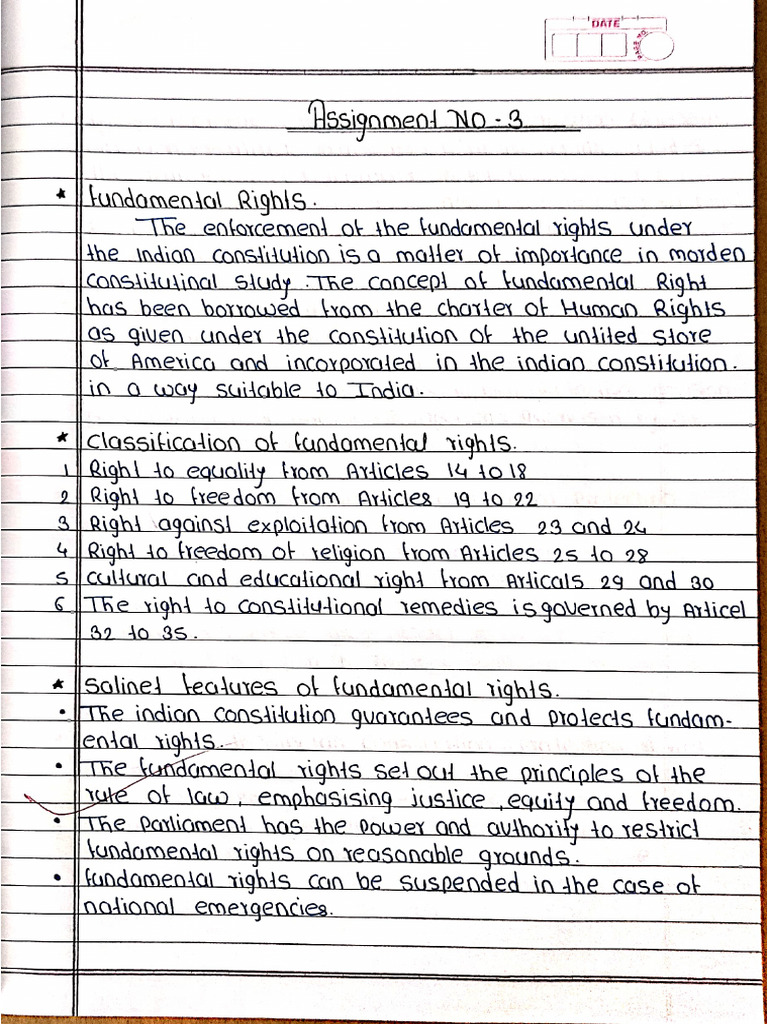 DATE
PAGE NO.
Assignment NO - 3
* Fundamental Rights.
The enforcement of the fundamental rights under
the indian constitution is a matter of importance in morden
constitutinal study. The concept of fundamental Right
has been borrowed from the charter of Human Rights
as given under the constitution of the untited store
of America and incorporated in the indian constitution.
in a way suitable to India.
* classification of fundamental rights.
1 Right to equality from Articles 14 to 18
2 Right to freedom from Articles 19 to 22
3 Right against exploitation from Articles 23 and 24
4 Right to freedom of religion from Articles 25 to 28
5 cultural and educational right from Articals 29 and 30
6 The right to constitutional remedies is governed by Articel
32 to 35.
* Salinet features of fundamental rights.
• The indian constitution guarantees and protects fundam-
ental rights.
• The fundamental rights set out the principles of the
rule of law, emphasising justice, equity and freedom.
• The Parliament has the power and authority to restrict
fundamental rights on reasonable grounds.
• fundamental rights can be suspended in the case of
national emergencies.